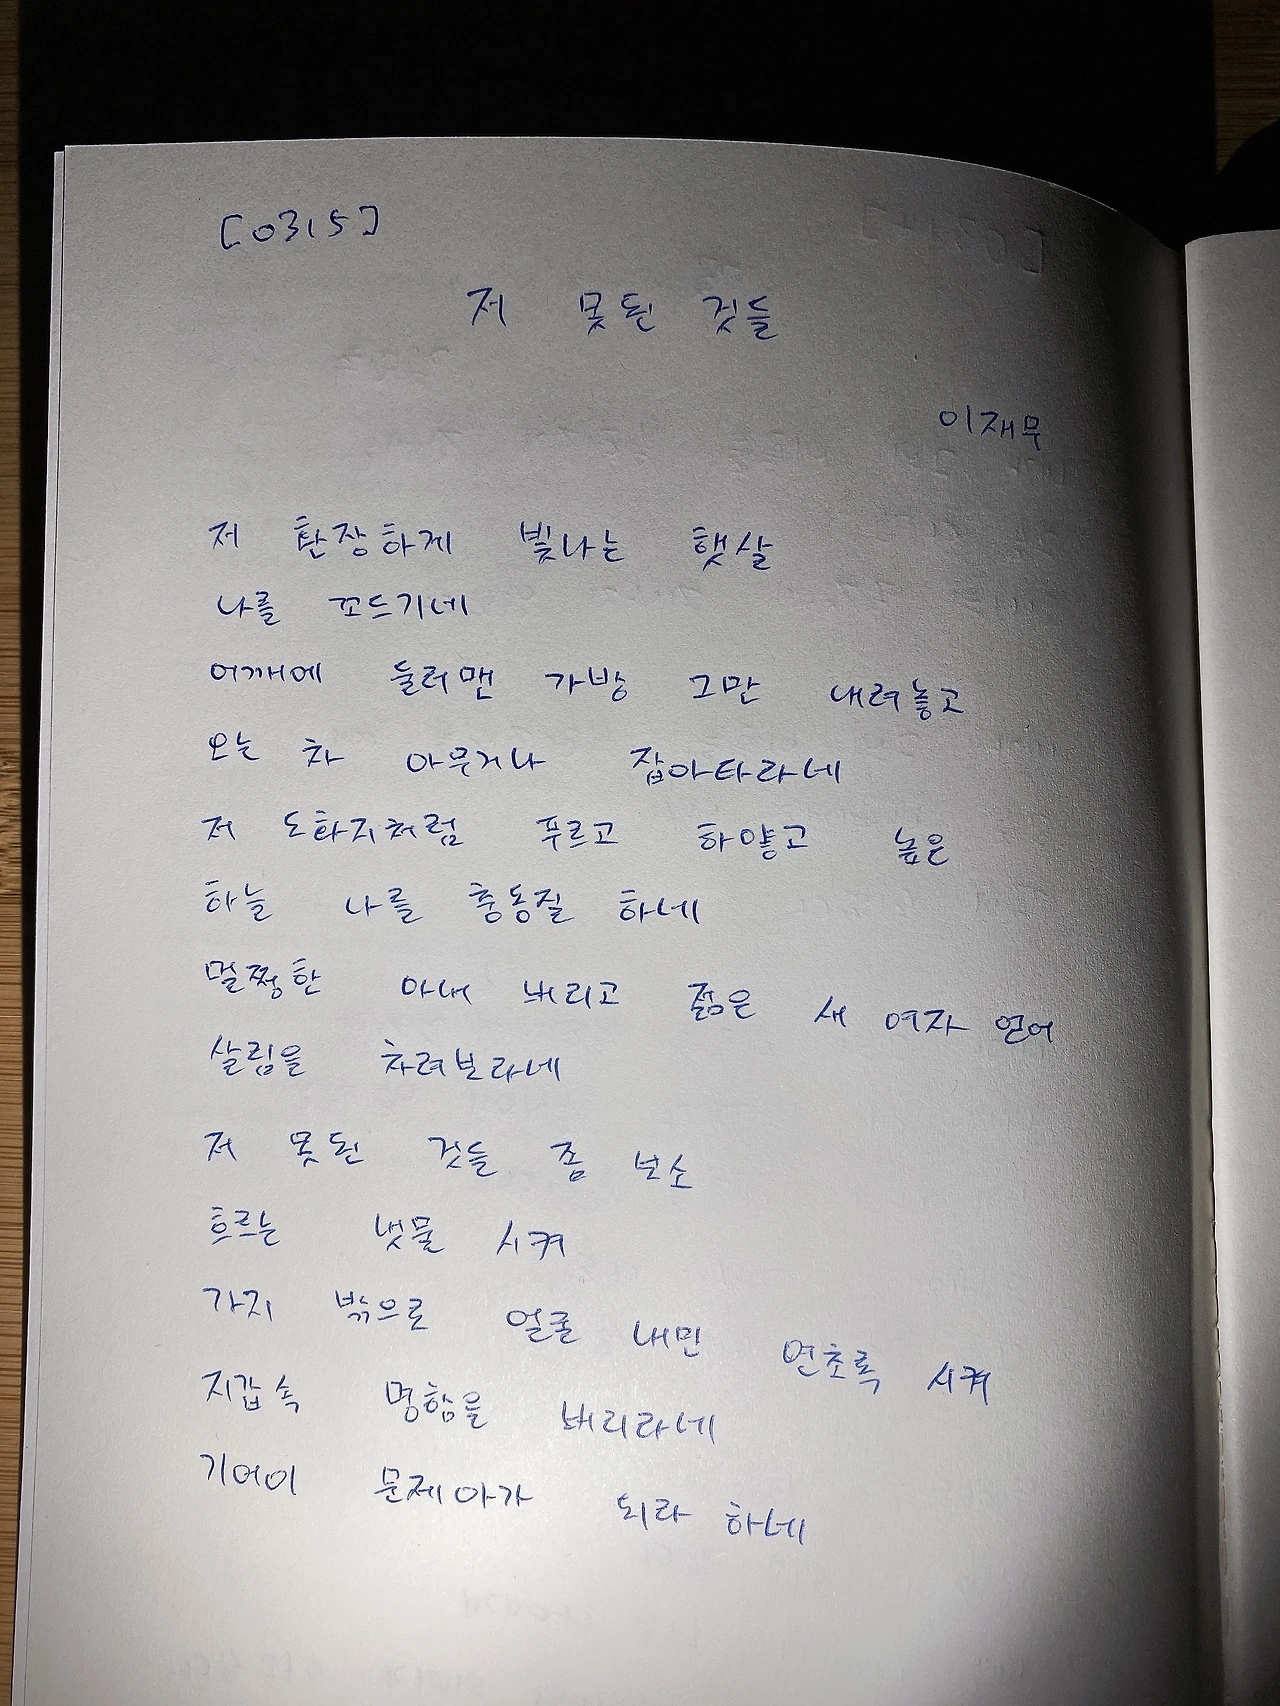 [0315]
저 못된 것들
이재무
저 환장하게 빛나는 햇살
나를 꼬드기네
어깨에 둘러맨 가방 그만 내려놓고
오는 차 아무거나 잡아타라네
저 도화지처럼 푸르고 하얗고 높은
하늘 나를 충동질 하네
멀쩡한 아내 버리고 젊은 새 여자 얻어
살림을 차려보라네
저 못된 것들 좀 보소
흐르는 냇물 시켜
가지 밖으로 얼굴 내민 연초록 시켜
지갑 속 명함을 버리라네
기어이 문제아가 되라 하네